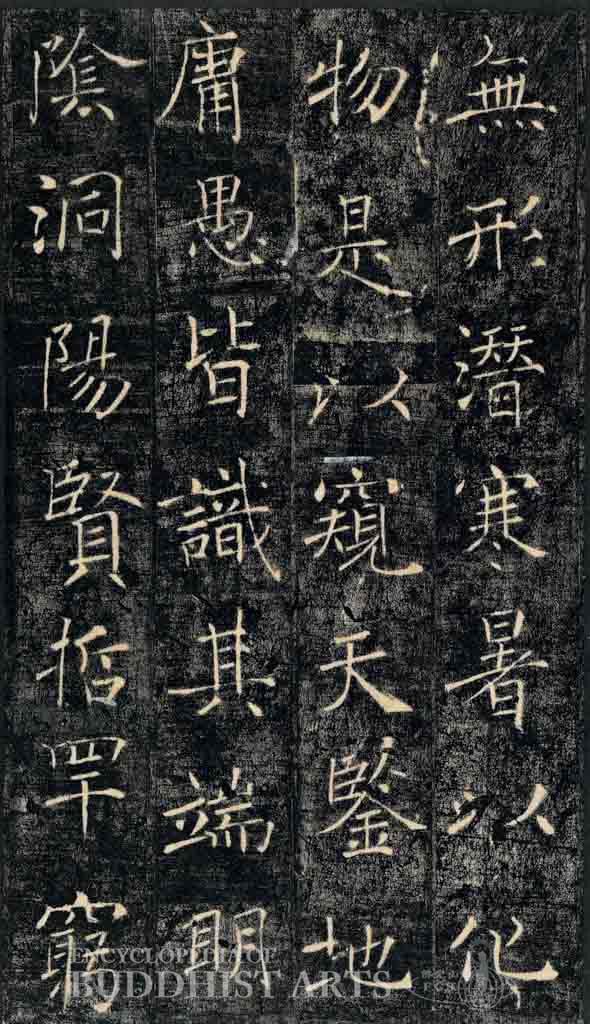 無形潛寒暑以化
物是以窺天鑒地
庸愚皆識其端明
陰洞陽賢哲罕窮
ENCYCLOPEDIA OF
BUDDHIST ARTS